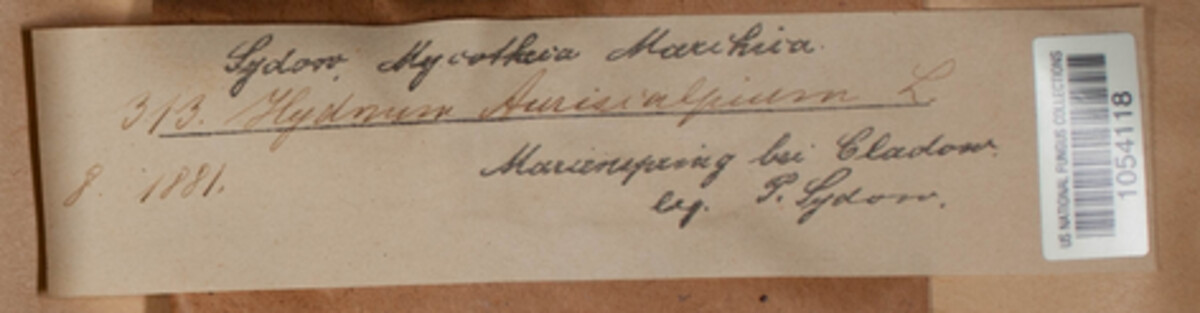 Sydow, Mycotheca Marchica.
313. Hydnum Auriscalpium L.
8. 1881.
Marienspring bei Cladow.
leg. P. Sydow.
US NATIONAL FUNGUS COLLECTIONS
1054118